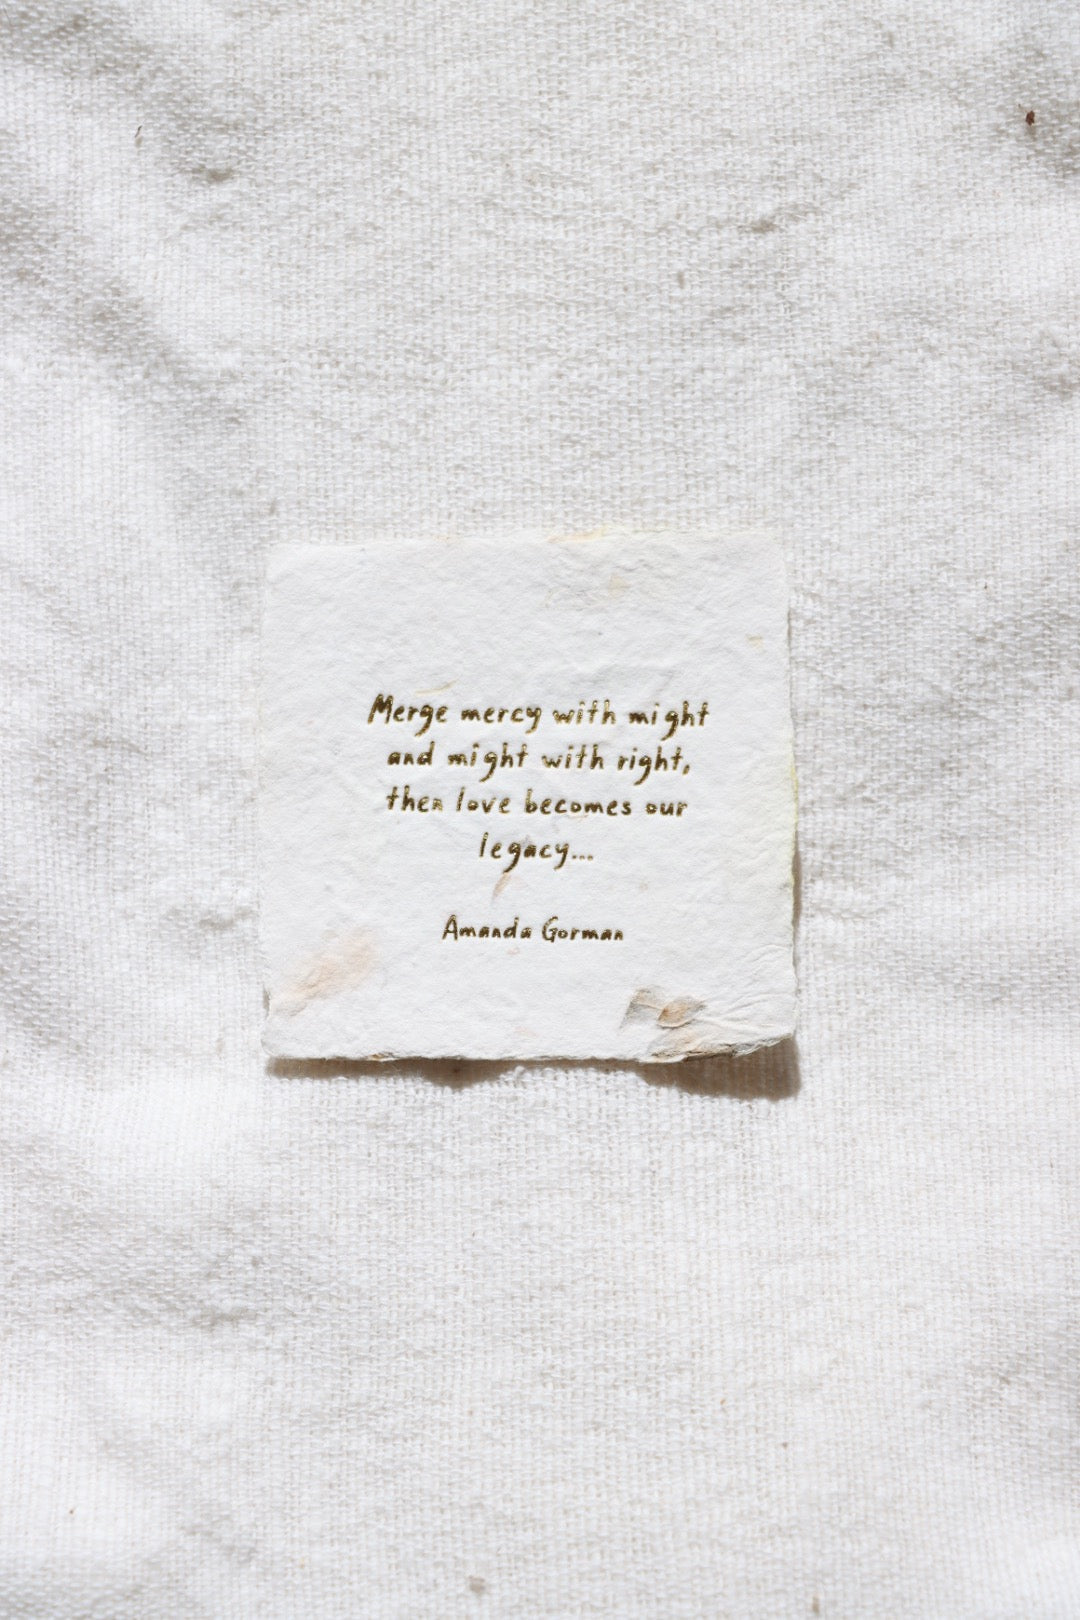 Merge mercy with might
and might with right,
then love becomes our
legacy...
Amanda Gorman